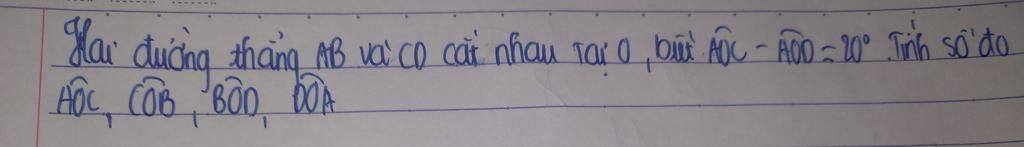 Hai đường thẳng AB và CD cắt nhau tại O, biết AÔC - AÔD = 20° Tính số đo
AÔC, CÔB, BÔD, DÔA